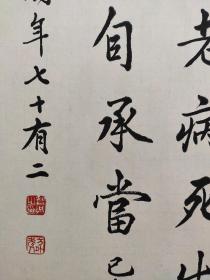 老病死生
自承當已
年七十有二